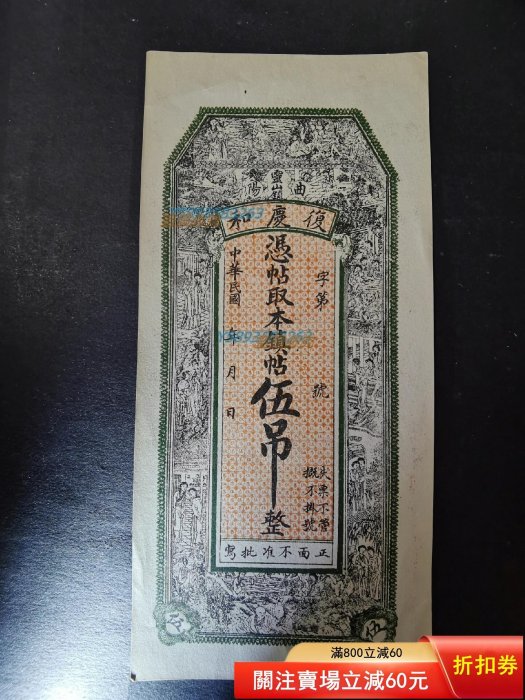 曲陽
靈崗
復慶和
字第 號
憑帖取本鎮帖伍吊整
中華民國 年 月 日
失票不管
概不掛號
正面不准批寫
伍
伍
滿800立減60
關注賣場立減60元
折扣券